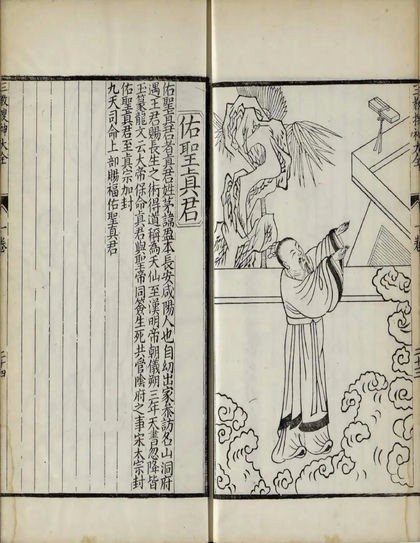 佑聖真君
佑聖真君者真君姓茅諱盈本長安咸陽人也自幼出家參訪名山洞府
遇王君賜長生之術得道稱為天仙至漢明帝朝儀朔三年天書忽降皆
玉篆龍文云大帝保命真君與聖帝同簽生死共管陰府之事宋太宗封
佑聖真君至真宗加封
九天司命上卿賜福佑聖真君
三教搜神大全
一卷